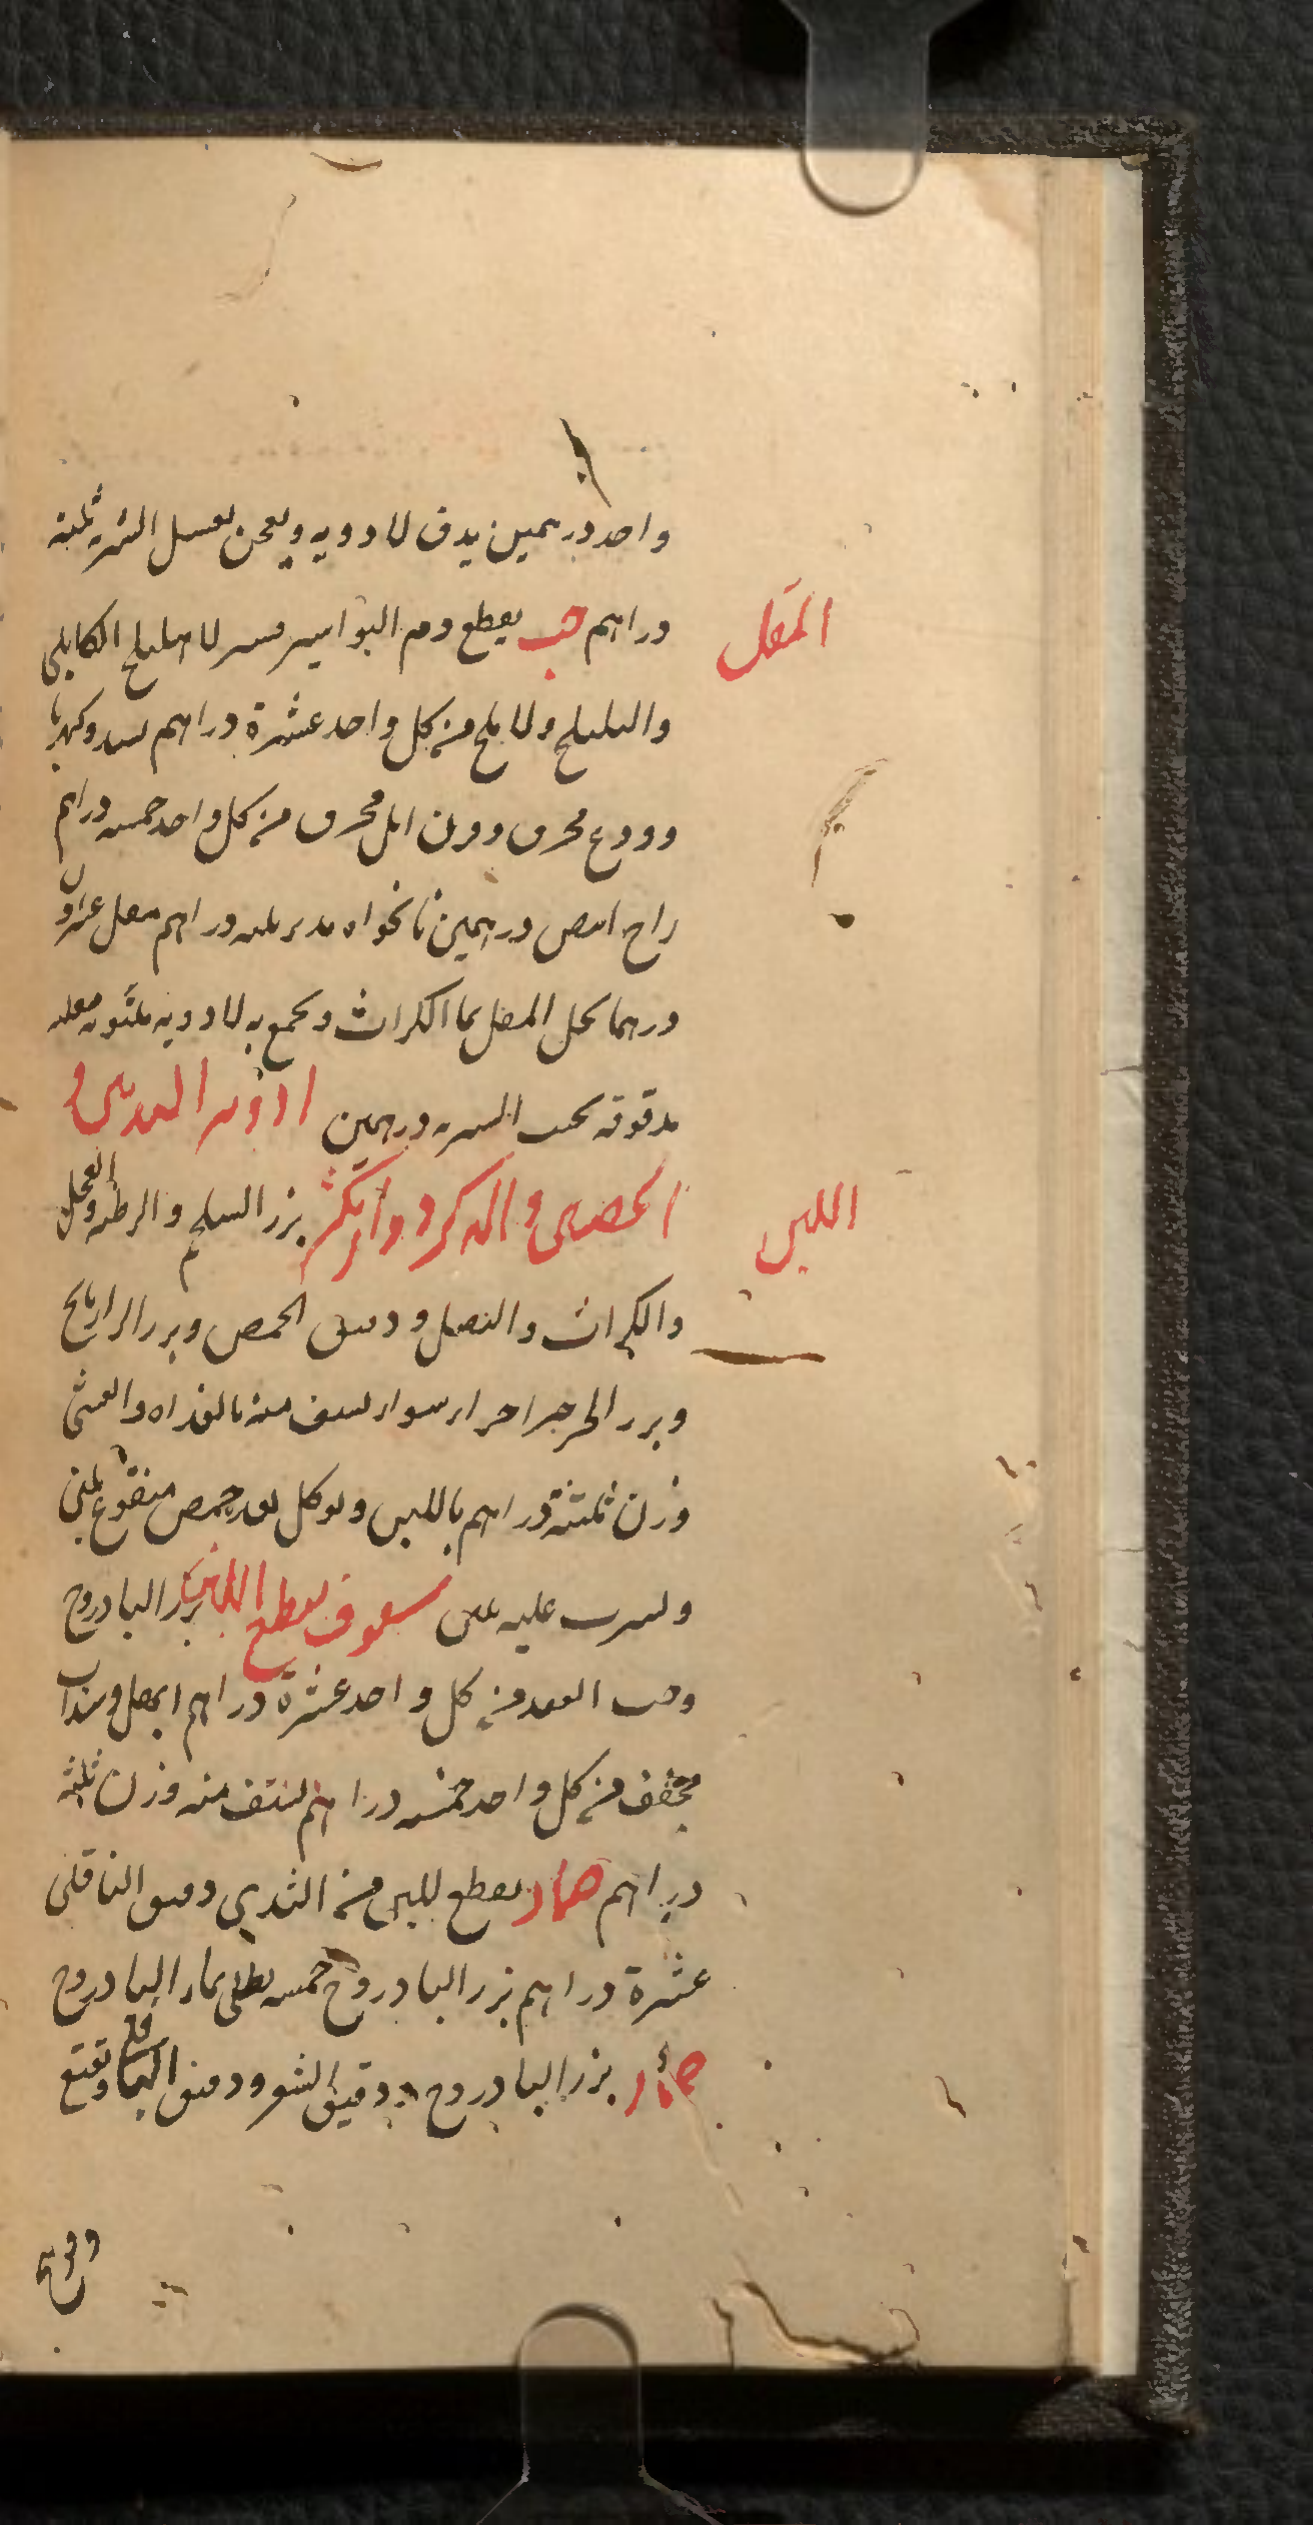 واحد درهمين يدق الادويه ويعجن بعسل الشربه ثلثة
المقل
دراهم حب يقطع دم البواسير الاهليلج الكابلي
والبليلج والاملج من كل واحد عشرة دراهم بسد وكهربا
وودع محرق وقرن ايل محرق من كل واحد خمسه دراهم
زاج ابيض درهمين نانخواه ثلثه دراهم مقل عشرون
درهما يحل المقل بما الكراث ويجمع به الادويه
مدقوقه يحبب الشربه درهمين ادويه الثديين و
اللبن
الخصيين والذكر دوا يكثر بزر السلجم والرطبه والفجل
والكراث والبصل ودقيق الحمص وبزر الرازيانج
وبزر الجرجير اجزا سوا يستف منه بالغداه والعشي
وزن ثلثة دراهم باللبن ويوكل بعد حمص منقوع بلبن
ويشرب عليه سفوف يقطع اللبن بزر البادروج
وحب الفقد من كل واحد عشرة دراهم وسذاب
مجفف من كل واحد خمسه دراهم يستف منه وزن ثلثه
دراهم ضماد يقطع اللبن من الثدي دقيق الباقلي
عشرة دراهم بزر البادروج خمسه يطلى بماء البادروج
ضماد بزر البادروج ودقيق الشعير ودقيق الباقلي